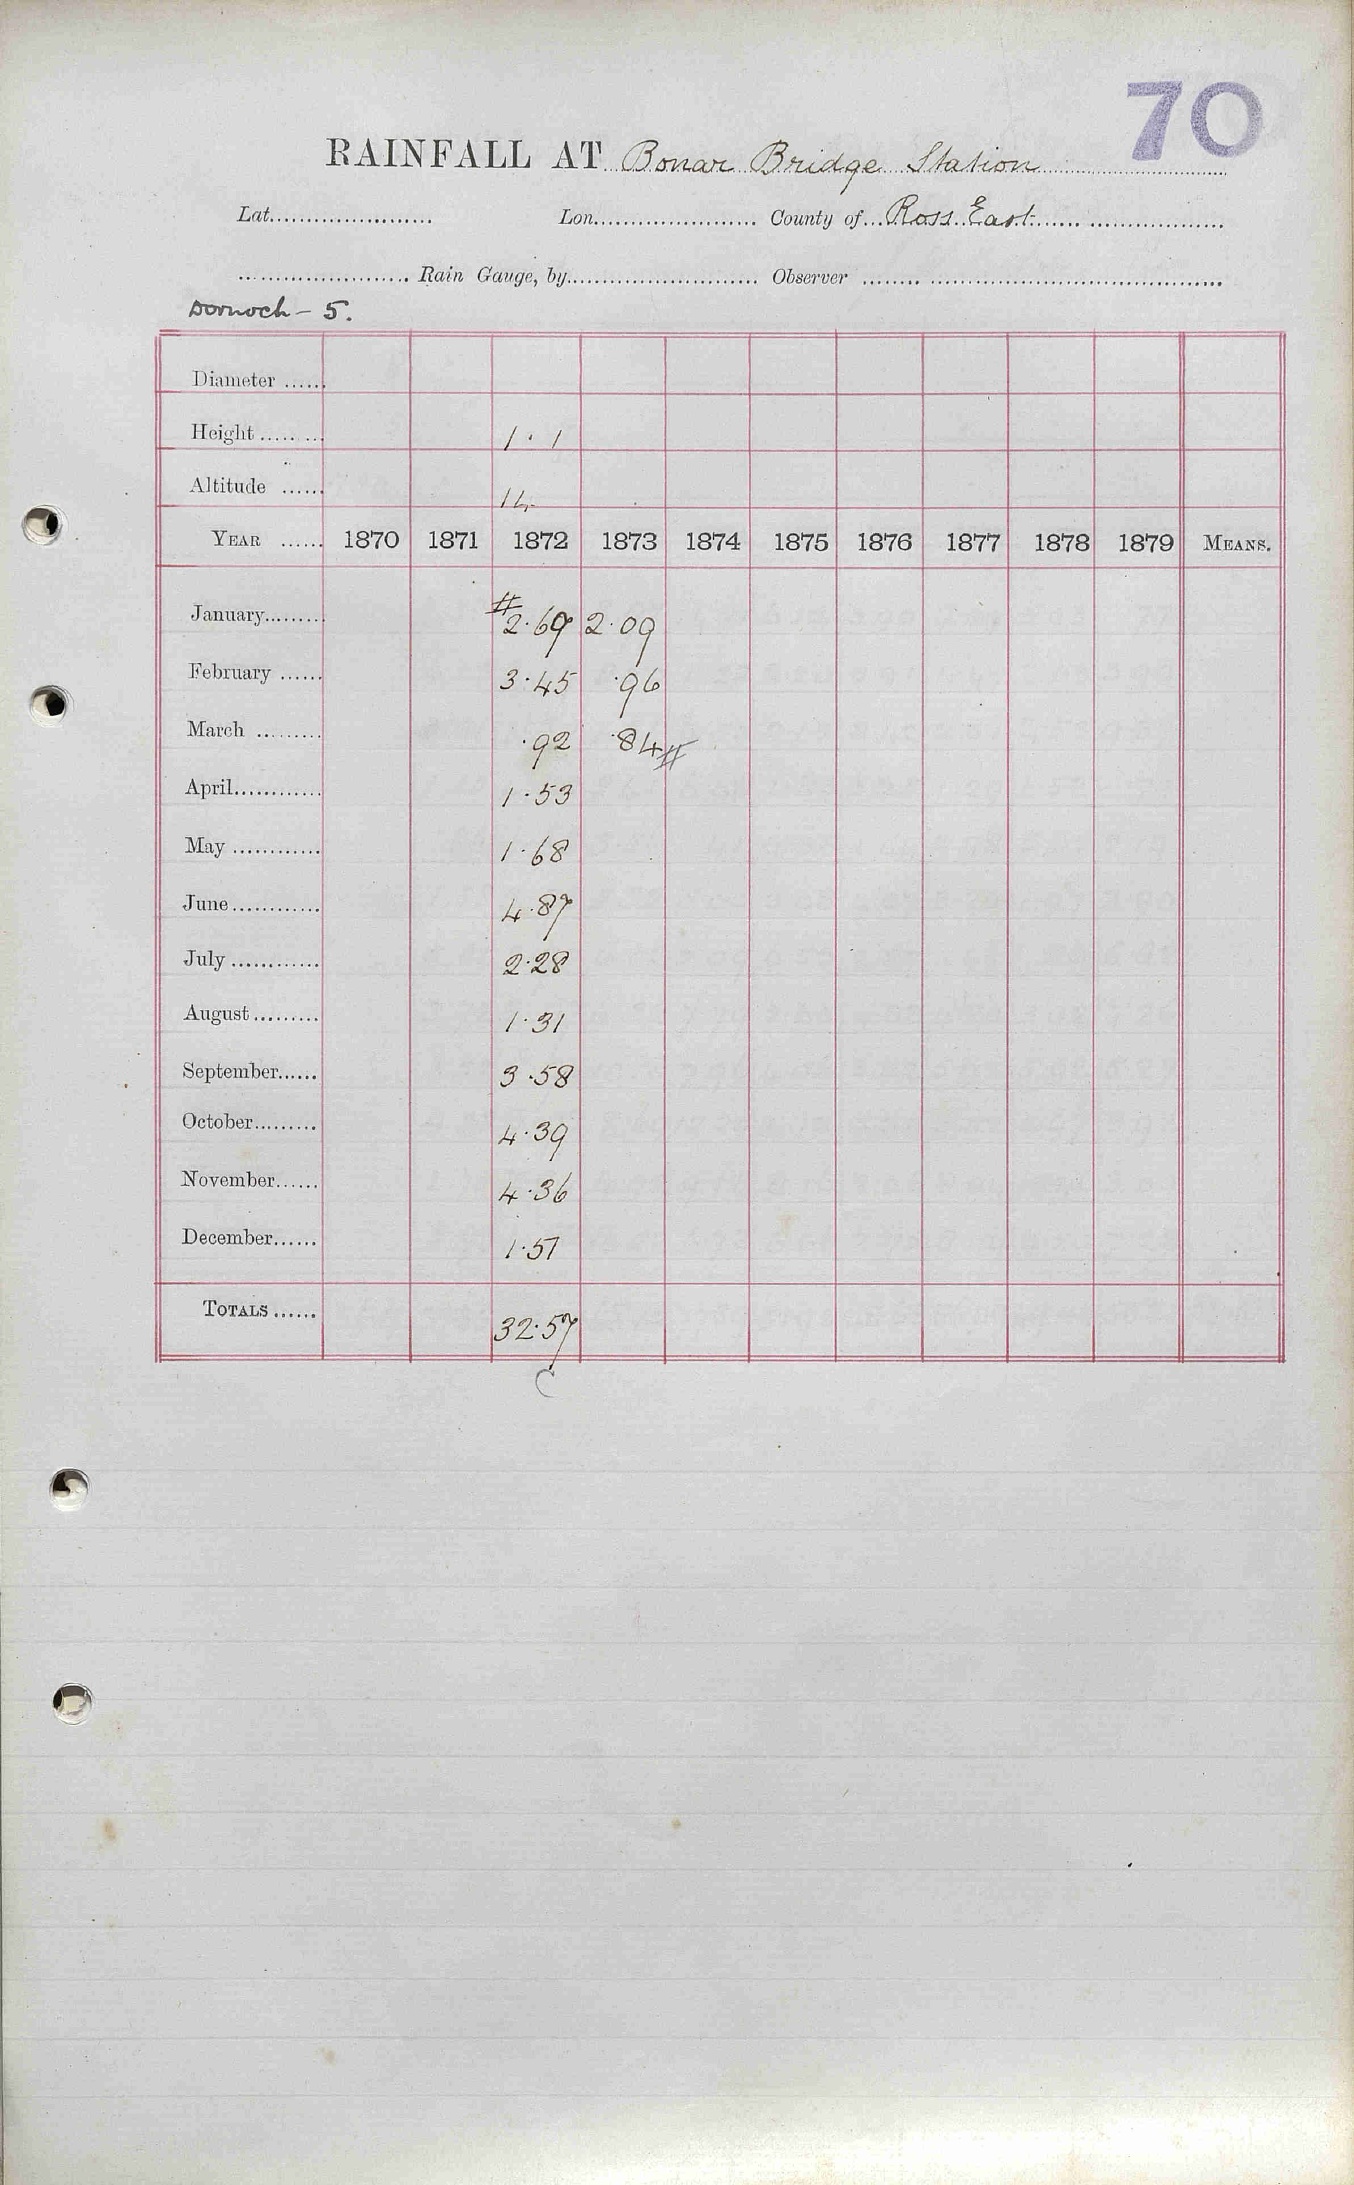 70
RAINFALL AT Bonar Bridge Station
Lat. Lon. County of Ross East
Rain Gauge, by Observer
Dornoch - 5.
Diameter
Height 1·1
Altitude 14
YEAR 1870 1871 1872 1873 1874 1875 1876 1877 1878 1879 MEANS.
January # 2·69 2·09
February 3·45 ·96
March ·92 ·84 #
April 1·53
May 1·68
June 4·87
July 2·28
August 1·31
September 3·58
October 4·39
November 4·36
December 1·51
TOTALS 32·57
C